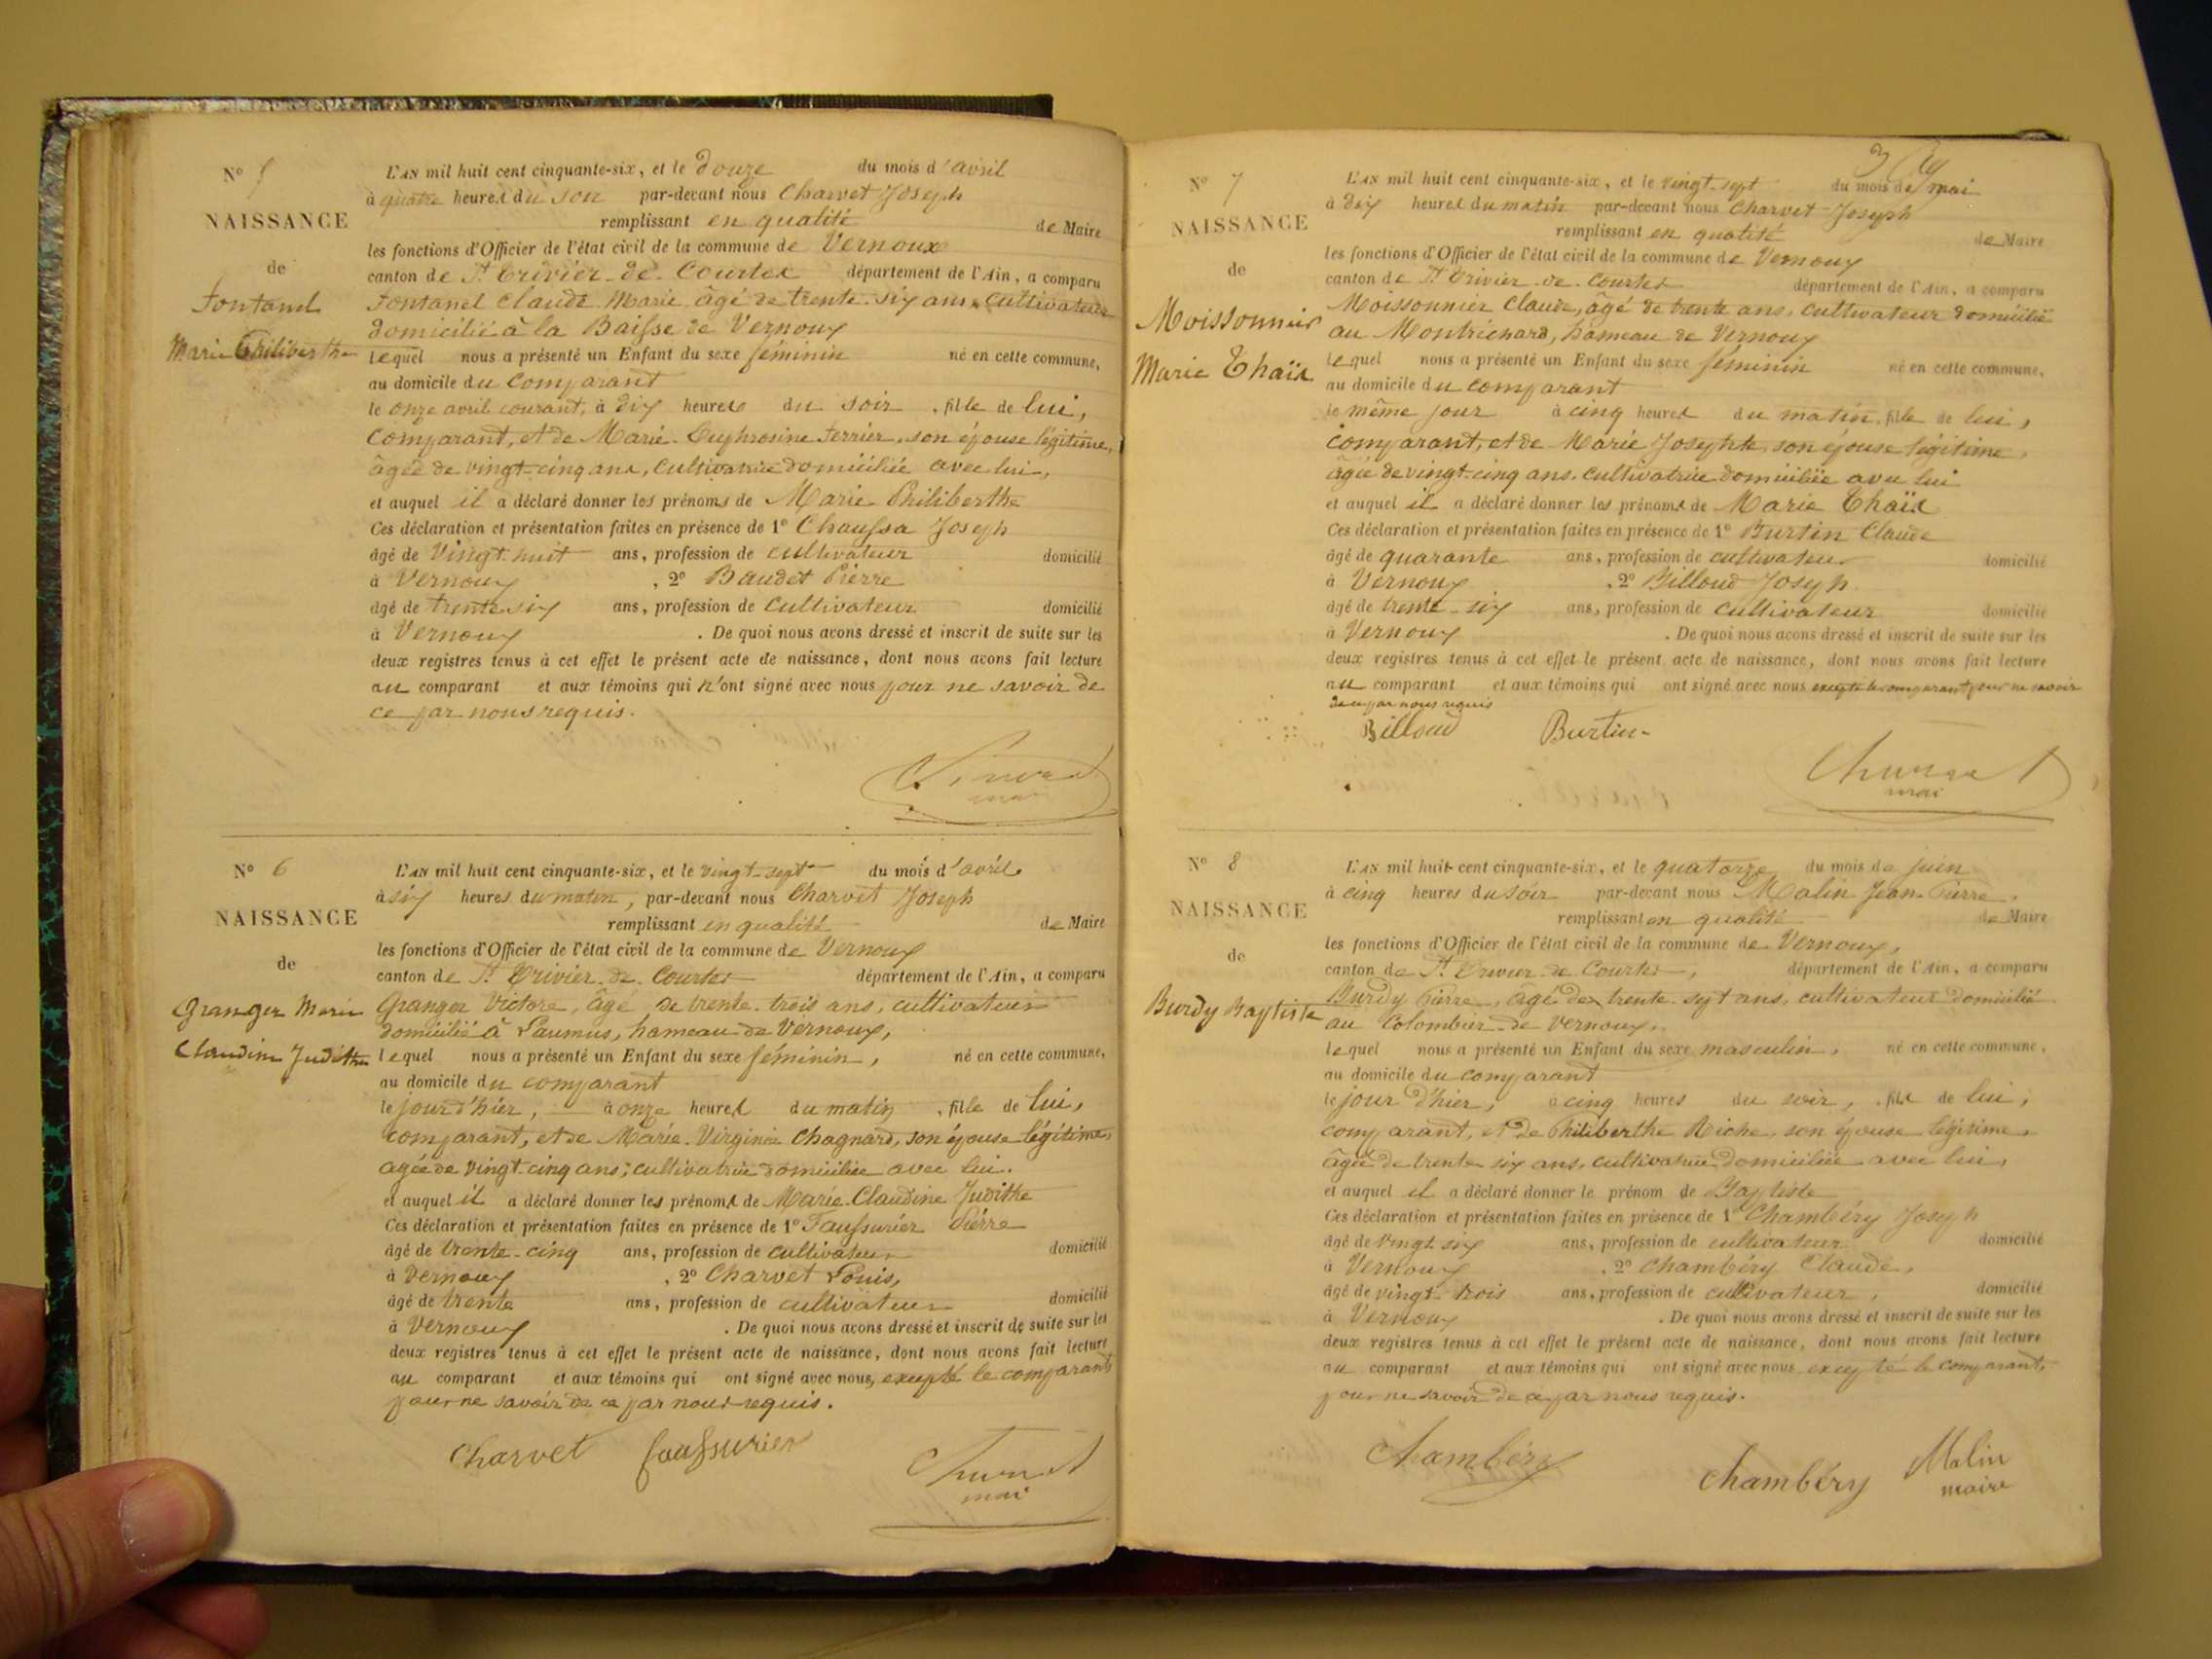 N° 5
NAISSANCE
de
Fontanel
Marie Philiberthe
L'AN mil huit cent cinquante-six, et le douze du mois d'avril
à quatre heures du soir par-devant nous Charvet Joseph
remplissant en qualité de Maire
les fonctions d'Officier de l'état civil de la commune de Vernoux
canton de St Trivier-de-Courtes département de l'Ain, a comparu
Fontanel Claude Marie âgé de trente-six ans, cultivateur
domicilié à la Baisse de Vernoux
lequel nous a présenté un Enfant du sexe féminin né en cette commune,
au domicile du comparant
le onze avril courant, à dix heures du soir, fille de lui,
comparant, et de Marie-Euphrosine Ferrier, son épouse légitime,
âgée de vingt-cinq ans, cultivatrice domiciliée avec lui,
et auquel il a déclaré donner les prénoms de Marie Philiberthe
Ces déclaration et présentation faites en présence de 1° Chaussa Joseph
âgé de vingt-huit ans, profession de cultivateur domicilié
à Vernoux, 2° Baudet Pierre
âgé de trente-six ans, profession de cultivateur domicilié
à Vernoux. De quoi nous avons dressé et inscrit de suite sur les
deux registres tenus à cet effet le présent acte de naissance, dont nous avons fait lecture
au comparant et aux témoins qui n'ont signé avec nous pour ne savoir de
ce par nous requis.
Charvet
mai
N° 6
NAISSANCE
de
Granger Marie
Claudine Judithe
L'AN mil huit cent cinquante-six, et le vingt-sept du mois d'avril
à six heures du matin, par-devant nous Charvet Joseph
remplissant en qualité de Maire
les fonctions d'Officier de l'état civil de la commune de Vernoux
canton de St Trivier-de-Courtes département de l'Ain, a comparu
Granger Victore, âgé de trente-trois ans, cultivateur
domicilié à Laumus, hameau de Vernoux,
lequel nous a présenté un Enfant du sexe féminin, né en cette commune,
au domicile du comparant
le jour d'hier, à onze heures du matin, fille de lui,
comparant, et de Marie-Virginie Chagnard, son épouse légitime,
agée de vingt-cinq ans, cultivatrice domiciliée avec lui.
et auquel il a déclaré donner les prénoms de Marie-Claudine Judithe
Ces déclaration et présentation faites en présence de 1° Faussurier Pierre
âgé de trente-cinq ans, profession de cultivateur domicilié
à Vernoux, 2° Charvet Louis,
âgé de trente ans, profession de cultivateur domicilié
à Vernoux. De quoi nous avons dressé et inscrit de suite sur les
deux registres tenus à cet effet le présent acte de naissance, dont nous avons fait lecture
au comparant et aux témoins qui ont signé avec nous, excepté le comparant
pour ne savoir de ce par nous requis.
Charvet Faussurier
Charvet
mai
N° 7
NAISSANCE
de
Moissonnier
Marie Thaïs
L'AN mil huit cent cinquante-six, et le vingt-sept du mois de mai
à dix heures du matin par-devant nous Charvet Joseph
remplissant en qualité de Maire
les fonctions d'Officier de l'état civil de la commune de Vernoux
canton de St Trivier-de-Courtes département de l'Ain, a comparu
Moissonnier Claude, âgé de trente ans, cultivateur domicilié
au Montrichard, hameau de Vernoux
lequel nous a présenté un Enfant du sexe féminin né en cette commune,
au domicile du comparant
le même jour à cinq heures du matin, fille de lui,
comparant, et de Marie Josephte, son épouse légitime,
âgée de vingt-cinq ans, cultivatrice domiciliée avec lui
et auquel il a déclaré donner les prénoms de Marie Thaïs
Ces déclaration et présentation faites en présence de 1° Burtin Claude
âgé de quarante ans, profession de cultivateur domicilié
à Vernoux, 2° Billoud Joseph
âgé de trente-six ans, profession de cultivateur domicilié
à Vernoux. De quoi nous avons dressé et inscrit de suite sur les
deux registres tenus à cet effet le présent acte de naissance, dont nous avons fait lecture
au comparant et aux témoins qui ont signé avec nous excepté le comparant pour ne savoir
de ce par nous requis
Billoud Burtin
Charvet
mai
N° 8
NAISSANCE
de
Burdy Baptiste
L'AN mil huit cent cinquante-six, et le quatorze du mois de juin
à cinq heures du soir par-devant nous Malin Jean-Pierre,
remplissant en qualité de Maire
les fonctions d'Officier de l'état civil de la commune de Vernoux,
canton de St Trivier-de-Courtes, département de l'Ain, a comparu
Burdy Pierre, âgé de trente-sept ans, cultivateur domicilié
au Colombier de Vernoux,
lequel nous a présenté un Enfant du sexe masculin, né en cette commune,
au domicile du comparant
le jour d'hier, à cinq heures du soir, fils de lui,
comparant, et de Philiberthe Riche, son épouse légitime,
âgée de trente-six ans, cultivatrice domiciliée avec lui,
et auquel il a déclaré donner le prénom de Baptiste
Ces déclaration et présentation faites en présence de 1° Chambéry Joseph
âgé de vingt-six ans, profession de cultivateur domicilié
à Vernoux, 2° Chambéry Claude,
âgé de vingt-trois ans, profession de cultivateur, domicilié
à Vernoux. De quoi nous avons dressé et inscrit de suite sur les
deux registres tenus à cet effet le présent acte de naissance, dont nous avons fait lecture
au comparant et aux témoins qui ont signé avec nous excepté le comparant,
pour ne savoir de ce par nous requis.
Chambéry
Chambéry Malin
maire